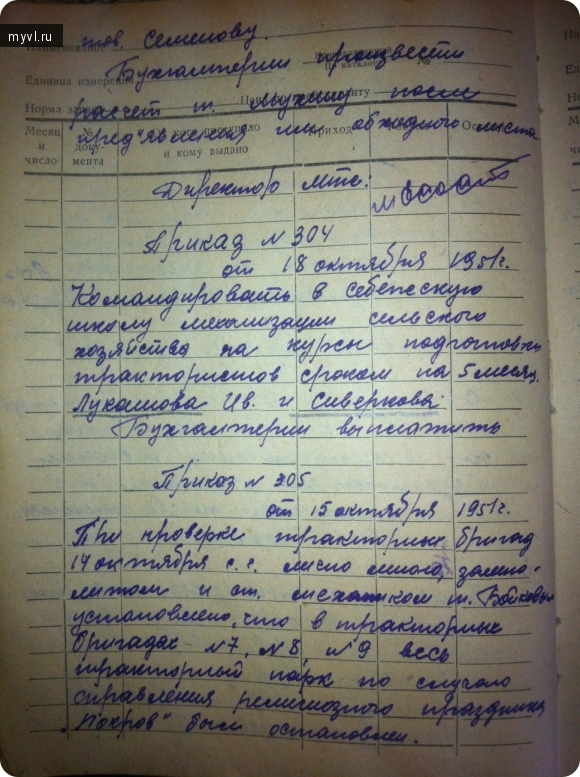 myvl.ru
тов Семенову.
Бухгалтерии произвести
расчет т. после
пред"явления им обходного листа
Наименование
Единица измерения
Норма
Месяц и число
№ доку-мента
и кому выдано
Приход
Директор Мтс:
Приказ № 304
от 18 октября 1951г.
Командировать в Себежскую
школу механизации сельского
хозяйства на курсы подготовки
трактористов сроком на 5 месяц.
Лукашова Ив. и Сиверкова.
Бухгалтерии выплатить
Приказ № 305
от 15 октября 1951г.
При проверке тракторных бригад
14 октября с. г. лично мною, зампо-
литом и ст. механиком т. Бойковым
установлено, что в тракторных
бригадах №7, №8, №9 весь
тракторный парк по случаю
справления религиозного праздника
„Покров" был остановлен.